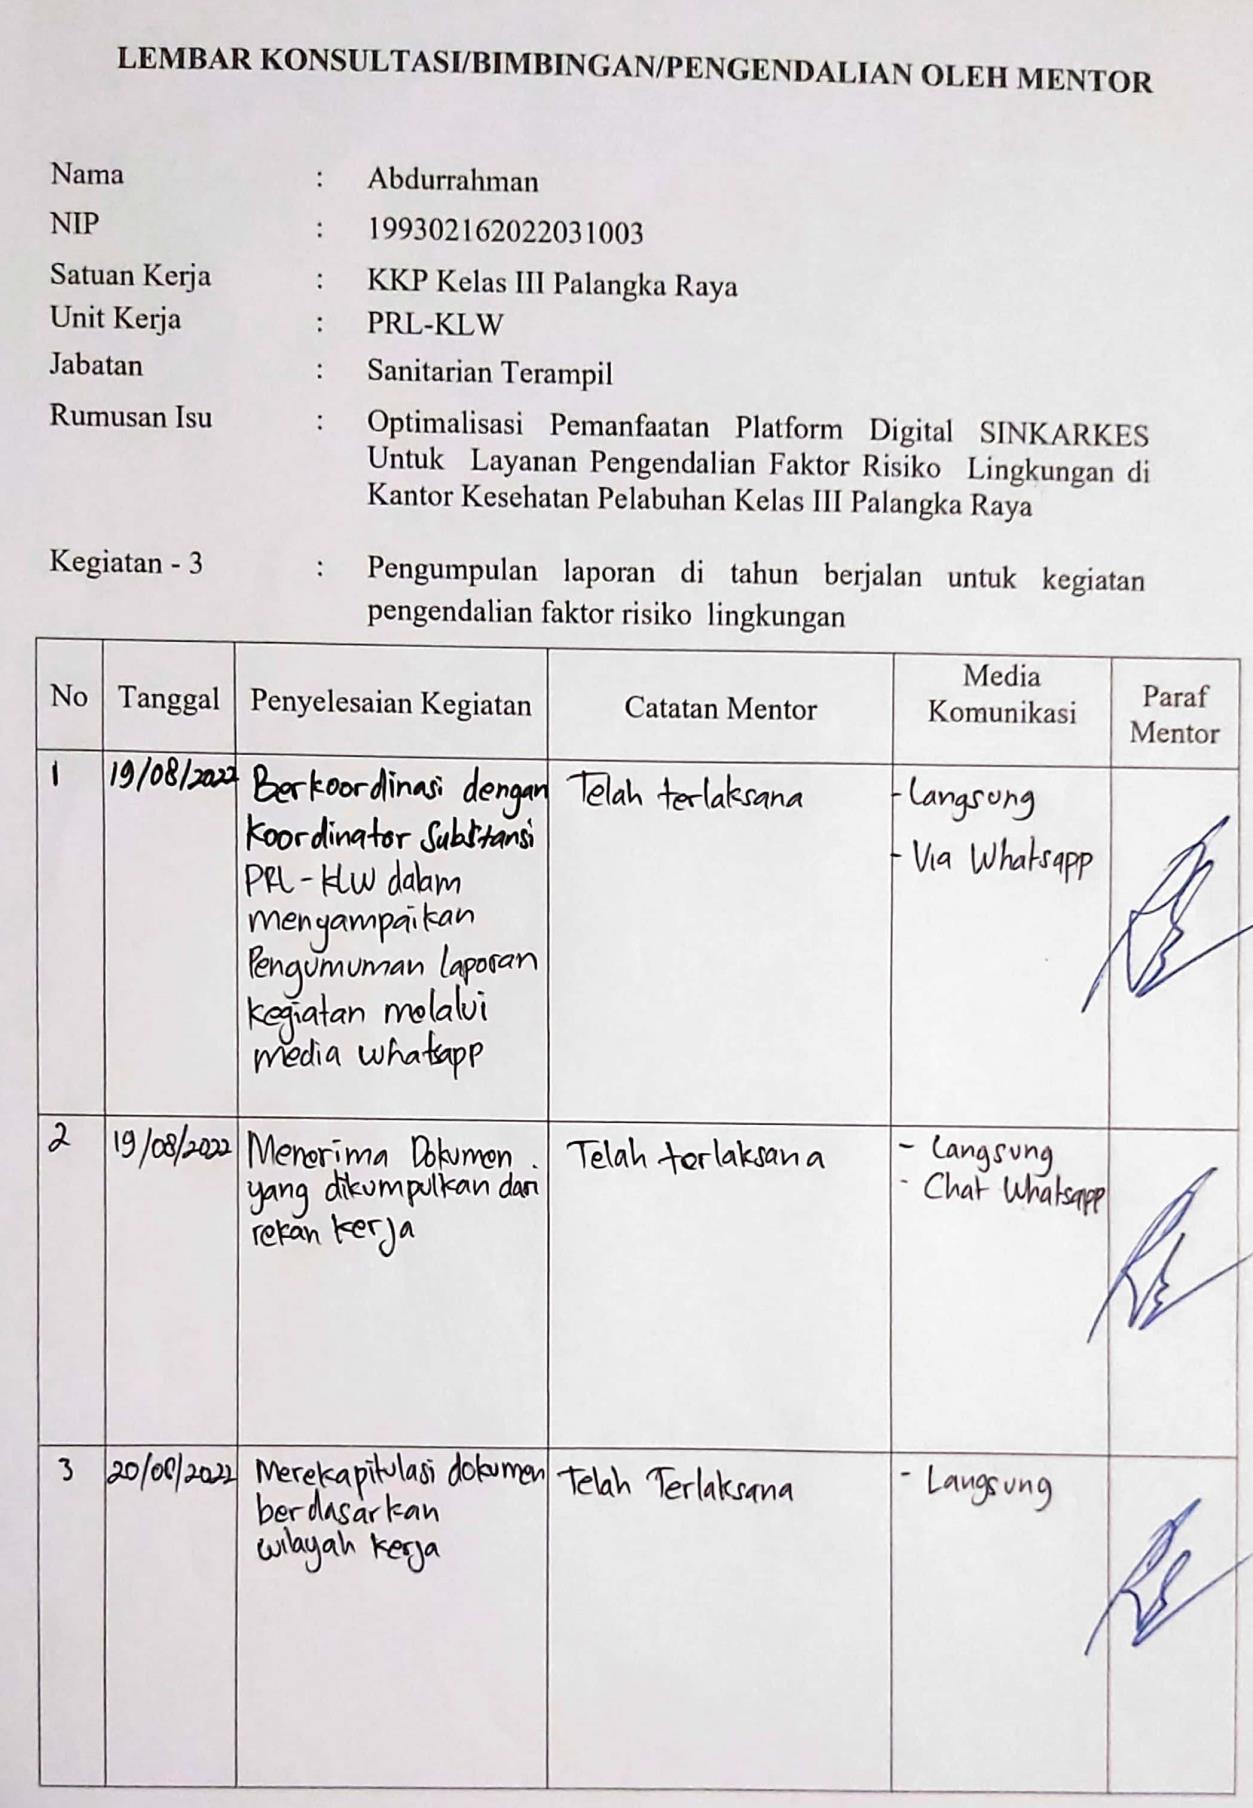 LEMBAR KONSULTASI/BIMBINGAN/PENGENDALIAN OLEH MENTOR
Nama : Abdurrahman
NIP : 199302162022031003
Satuan Kerja : KKP Kelas III Palangka Raya
Unit Kerja : PRL-KLW
Jabatan : Sanitarian Terampil
Rumusan Isu : Optimalisasi Pemanfaatan Platform Digital SINKARKES
Untuk Layanan Pengendalian Faktor Risiko Lingkungan di
Kantor Kesehatan Pelabuhan Kelas III Palangka Raya
Kegiatan - 3 : Pengumpulan laporan di tahun berjalan untuk kegiatan
pengendalian faktor risiko lingkungan
No Tanggal Penyelesaian Kegiatan Catatan Mentor Media Komunikasi Paraf Mentor
1 19/08/2022 Berkoordinasi dengan Telah terlaksana - Langsung
koordinator Substansi - Via Whatsapp
PRL-KLW dalam
mengampaikan
Pengumuman laporan
kegiatan melalui
media whatsapp
2 19/08/2022 Menerima Dokumen Telah terlaksana - Langsung
yang dikumpulkan dari - Chat Whatsapp
rekan kerja
3 20/08/2022 Merekapitulasi dokumen Telah Terlaksana - Langsung
berdasarkan
wilayah kerja